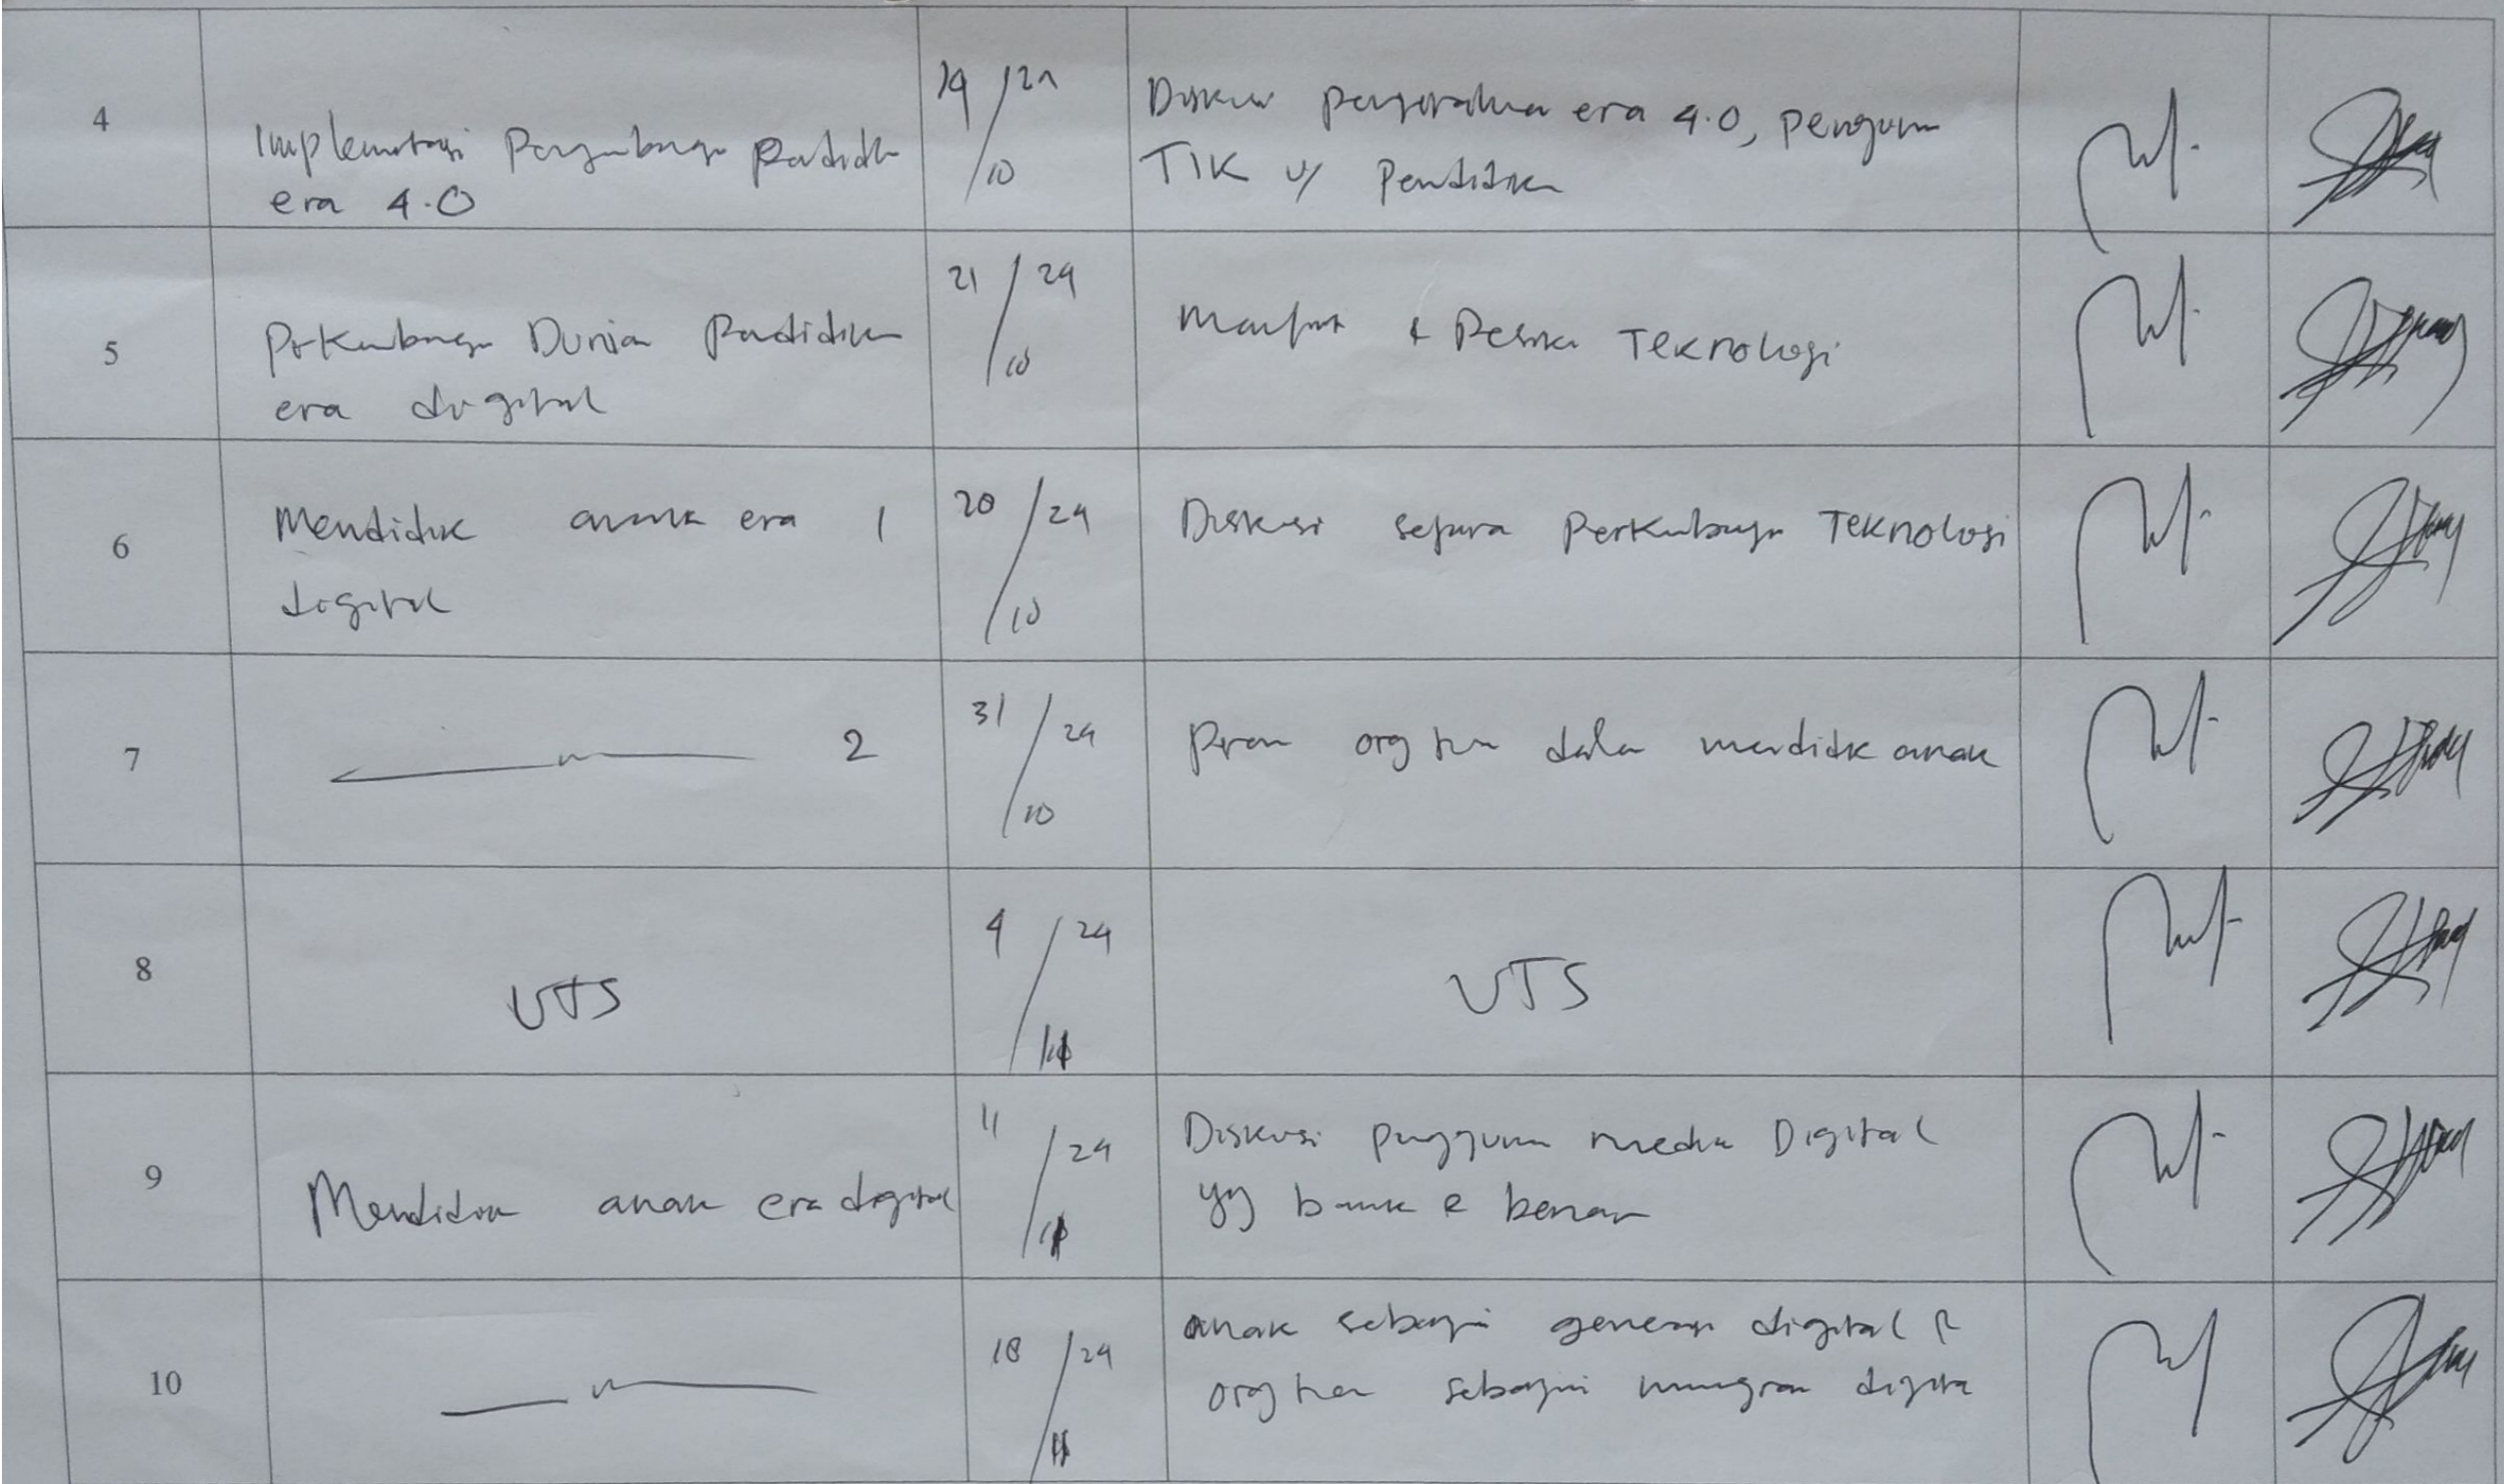 4
Implementasi Pengembangan Pendidik
era 4.0
14/10 24
Diskusi era 4.0, penggunaan
TIK u/ Pendidikan
5
Perkembangan Dunia Pendidikan
era digital
21/10 24
Manfaat & Teknologi
6
Mendidik anak era 1
digital
28/10 24
Diskusi sejarah Perkembangan Teknologi
7
2
31/10 24
Peran org tua dalam mendidik anak
8
UTS
4/11 24
UTS
9
Mendidik anak era digital
11/11 24
Diskusi penggunaan media Digital
yg baik & benar
10
18/11 24
anak sebagai generasi digital &
org tua sebagai imigran digital